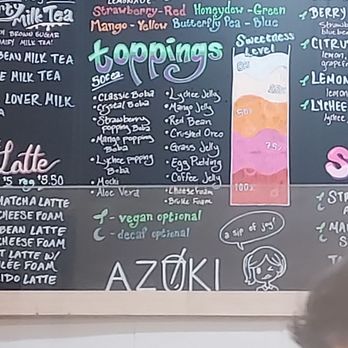 rty Milk Tea
WITH BROWN SUGAR
DAIRY MILK TEA!
BEAN MILK TEA
E MILK TEA
LOVER MILK
TEA
Latte
$5 REG $5.50
MATCHA LATTE
CHEESE FOAM
BEAN LATTE
CHEESE FOAM
T LATTE W/
LÉE FOAM
IDO LATTE
LEMONADE
Strawberry-Red Honeydew-Green
Mango-Yellow Butterfly Pea-Blue
toppings
50¢ ea
• Classic Boba
• Crystal Boba
• Strawberry
popping Boba
• Mango popping
Boba
• Lychee popping
Boba
• Mochi
• Aloe Vera
• Lychee Jelly
• Mango Jelly
• Red Bean
• Crushed Oreo
• Grass Jelly
• Egg Pudding
• Coffee Jelly
• Cheese Foam
• Brulee Foam
- vegan optional
- decaf optional
Sweetness
Level
0%
25%
50%
75%
100%
a sip of joy!
AZUKI
BERRY
blue be
CITRUS
lemon
grape
LEMON
lem
LYCHEE
lychee
S
ST
MA
S
T